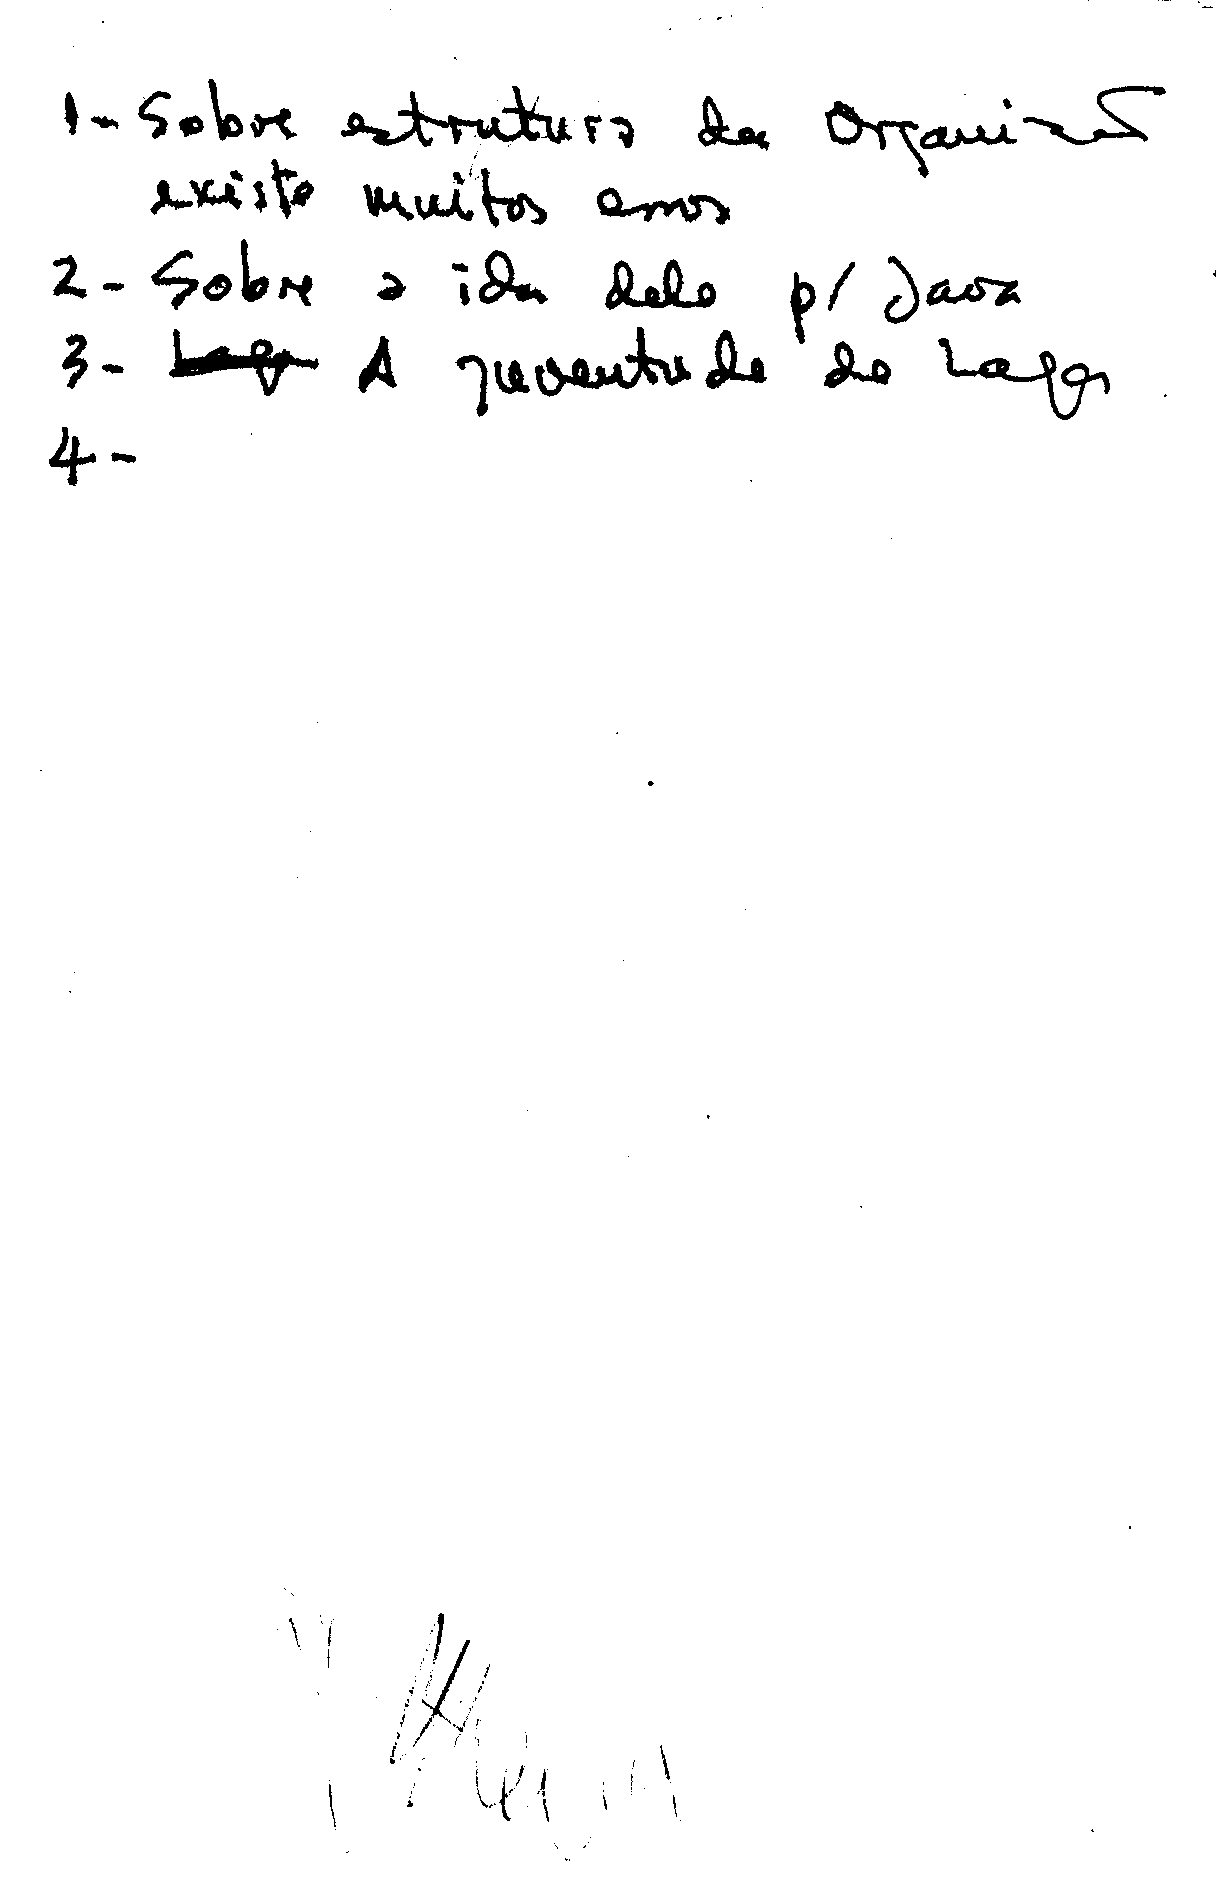 1- Sobre estrutura da Organização
existe muitos erros
2- Sobre a ida dele p/ Java
3- A juventude de Lages
4-